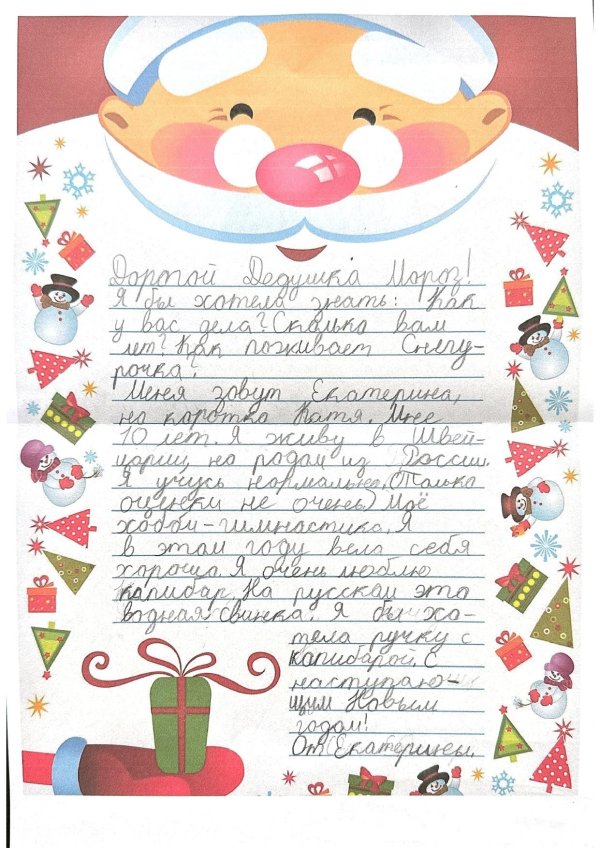 Дортой Дедушка Мороз!
Я бы хотела знать: Как
у вас дела? Сколько вам
лет? Как поживает Снегу-
рочка?
Меня зовут Екатерина,
но коротко Катя. Мне
10 лет. Я живу в Швей-
царии, но родом из России.
Я учусь нормально, (Только
оценки не очень) Моё
хобби-гимнастика. Я
в этом году вела себя
хорошо. Я очень люблю
капибар, На русском это
водная свинка. Я бы хо-
тела ручку с
капибарой. С
наступаю-
щим Новым
годом!
От Екатерины.